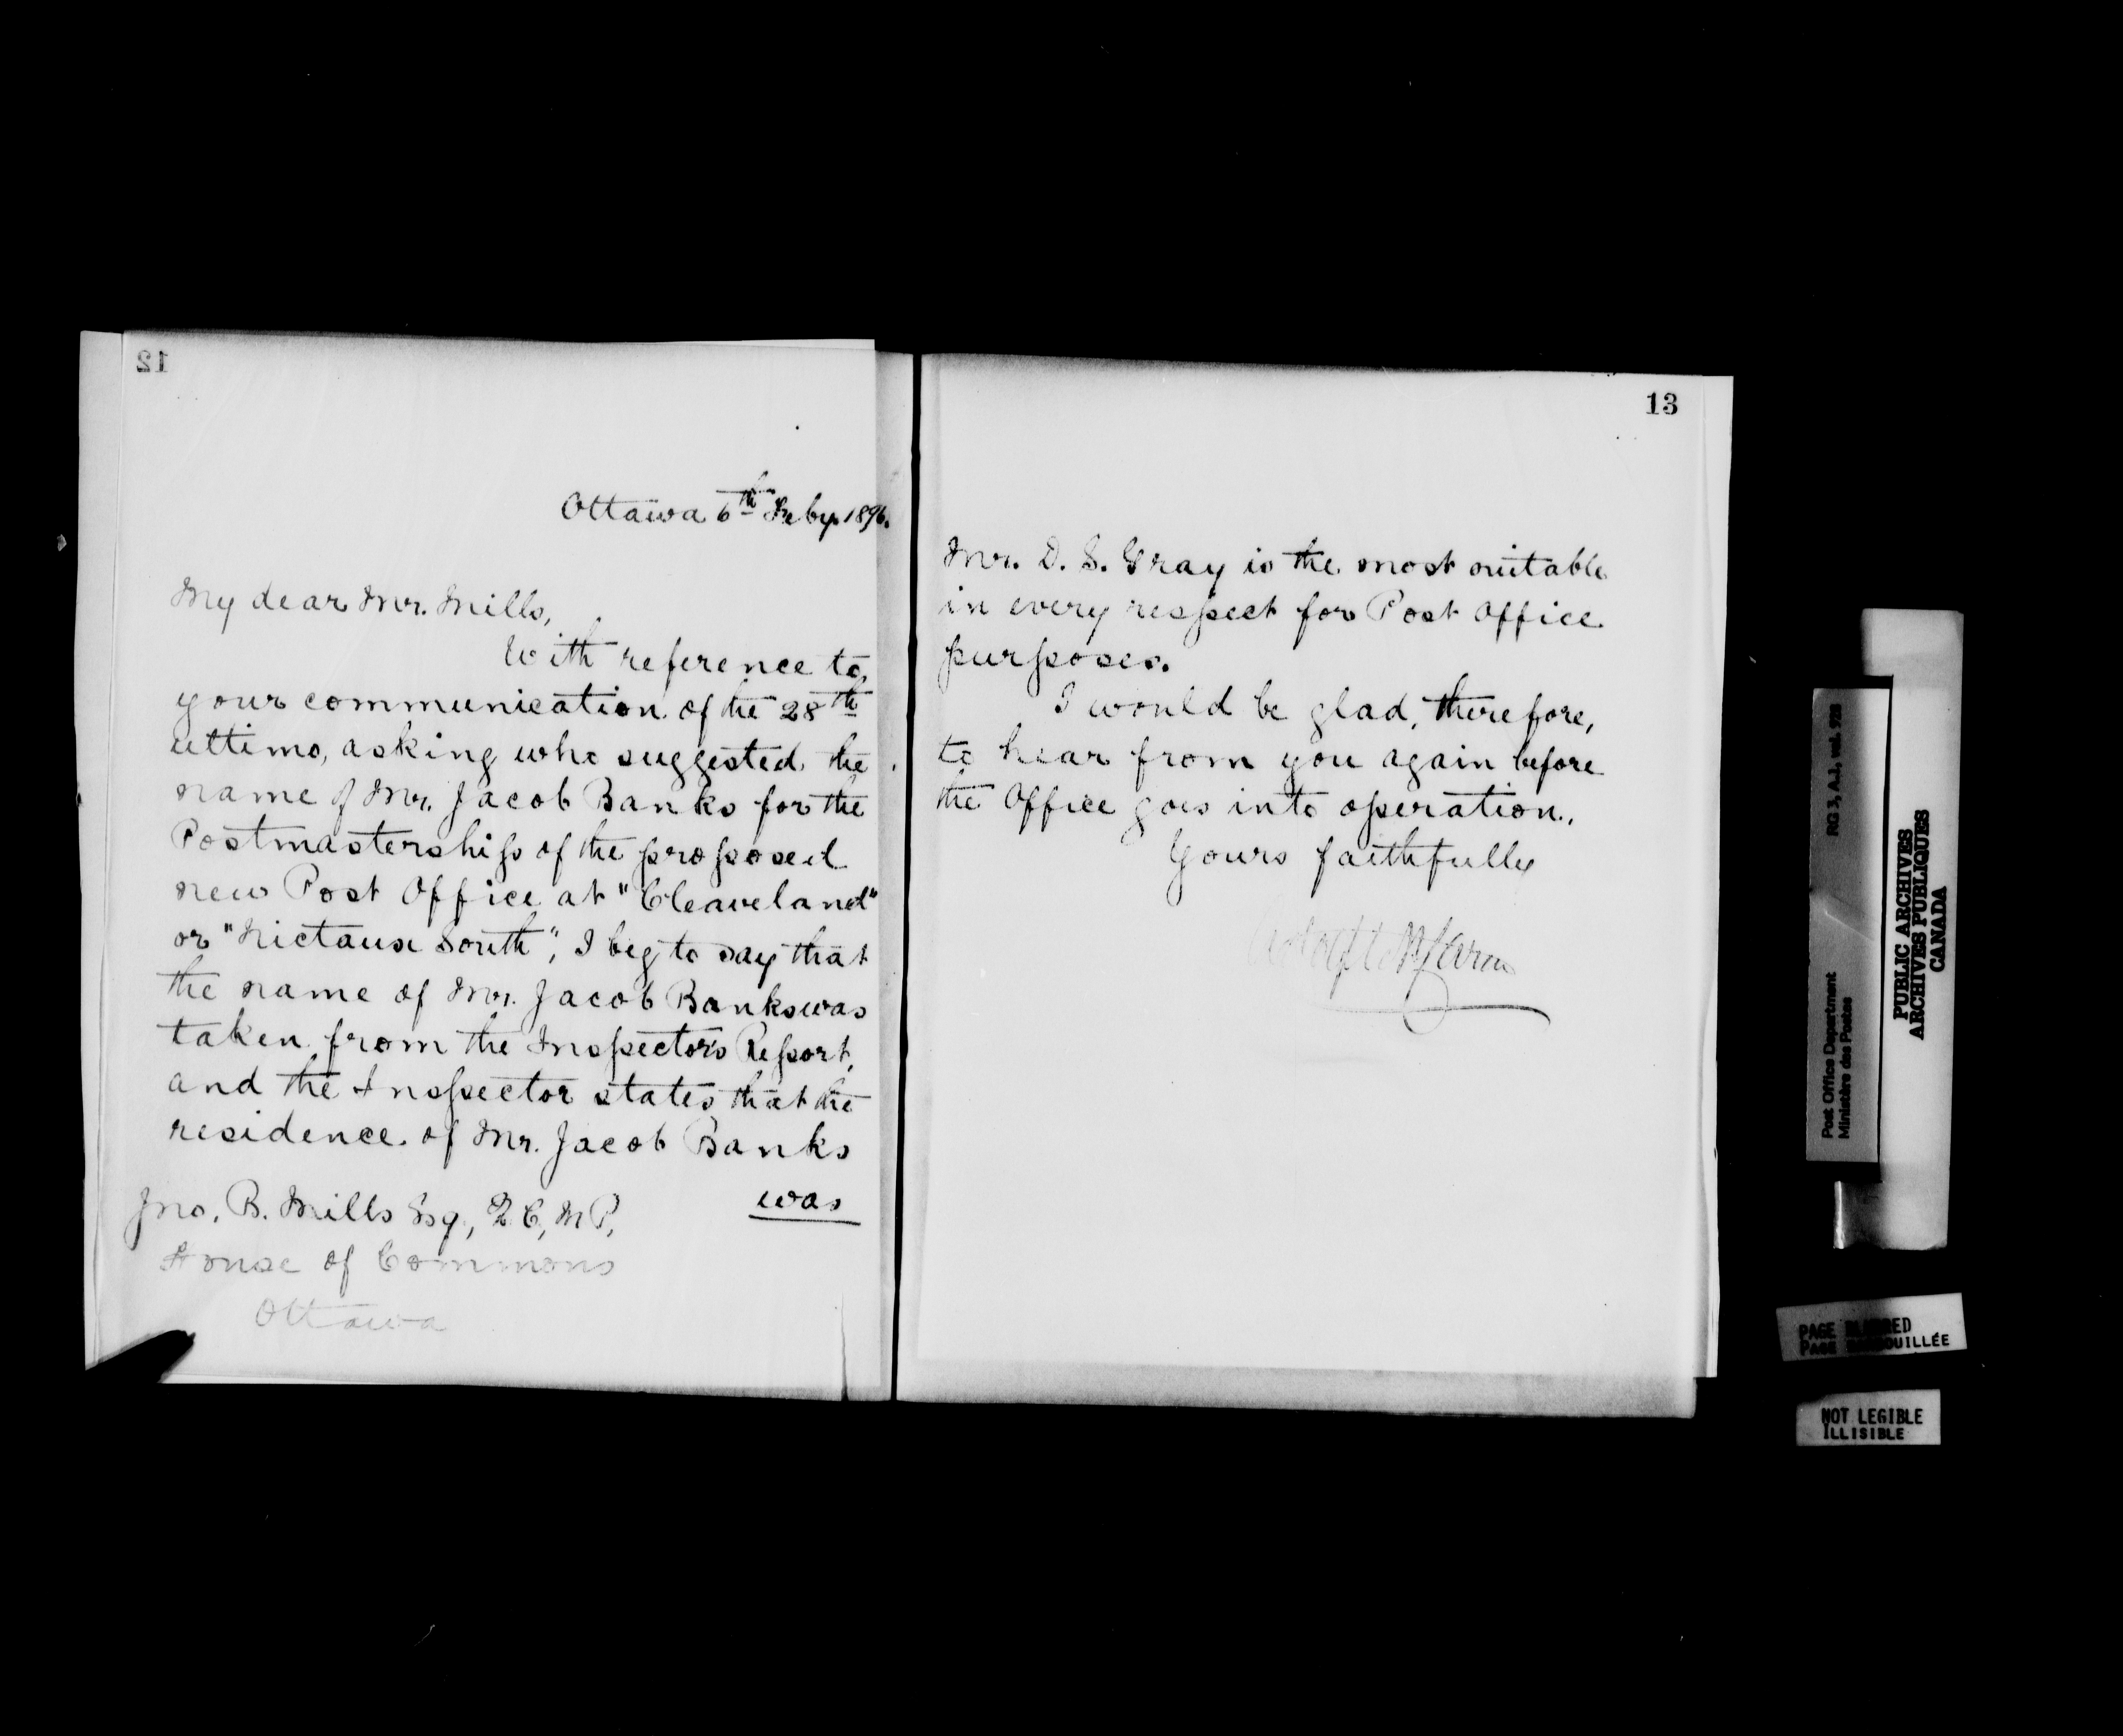 12
Ottawa 6th Feby. 1896.
My dear Mr. Mills,
With reference to
your communication of the 28th
ultimo, asking who suggested the
name of Mr. Jacob Banks for the
Postmastership of the proposed
new Post Office at "Cleaveland"
or "Nictaux South", I beg to say that
the name of Mr. Jacob Banks was
taken from the Inspector's Report,
and the Inspector states that the
residence of Mr. Jacob Banks
was
Jno. B. Mills Esq, Q C, M P,
House of Commons
Ottawa
13
Mr. D. S. Gray is the most suitable
in every respect for Post Office
purposes.
I would be glad, therefore,
to hear from you again before
the Office goes into operation.
Yours faithfully
RG 3, A.1, vol.
Post Office Department
Ministère des Postes
PUBLIC ARCHIVES
ARCHIVES PUBLIQUES
CANADA
PAGE
PAGE
NOT LEGIBLE
ILLISIBLE